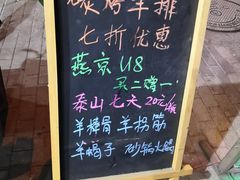 爆烤羊排
七折优惠
燕京 U8
买二赠一
泰山七天 20元/瓶
羊棒骨 羊拐筋
羊蝎子 砂锅火锅